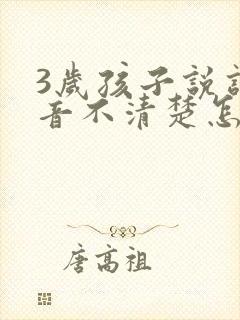 3歲孩子說
音不清楚怎
唐高祖